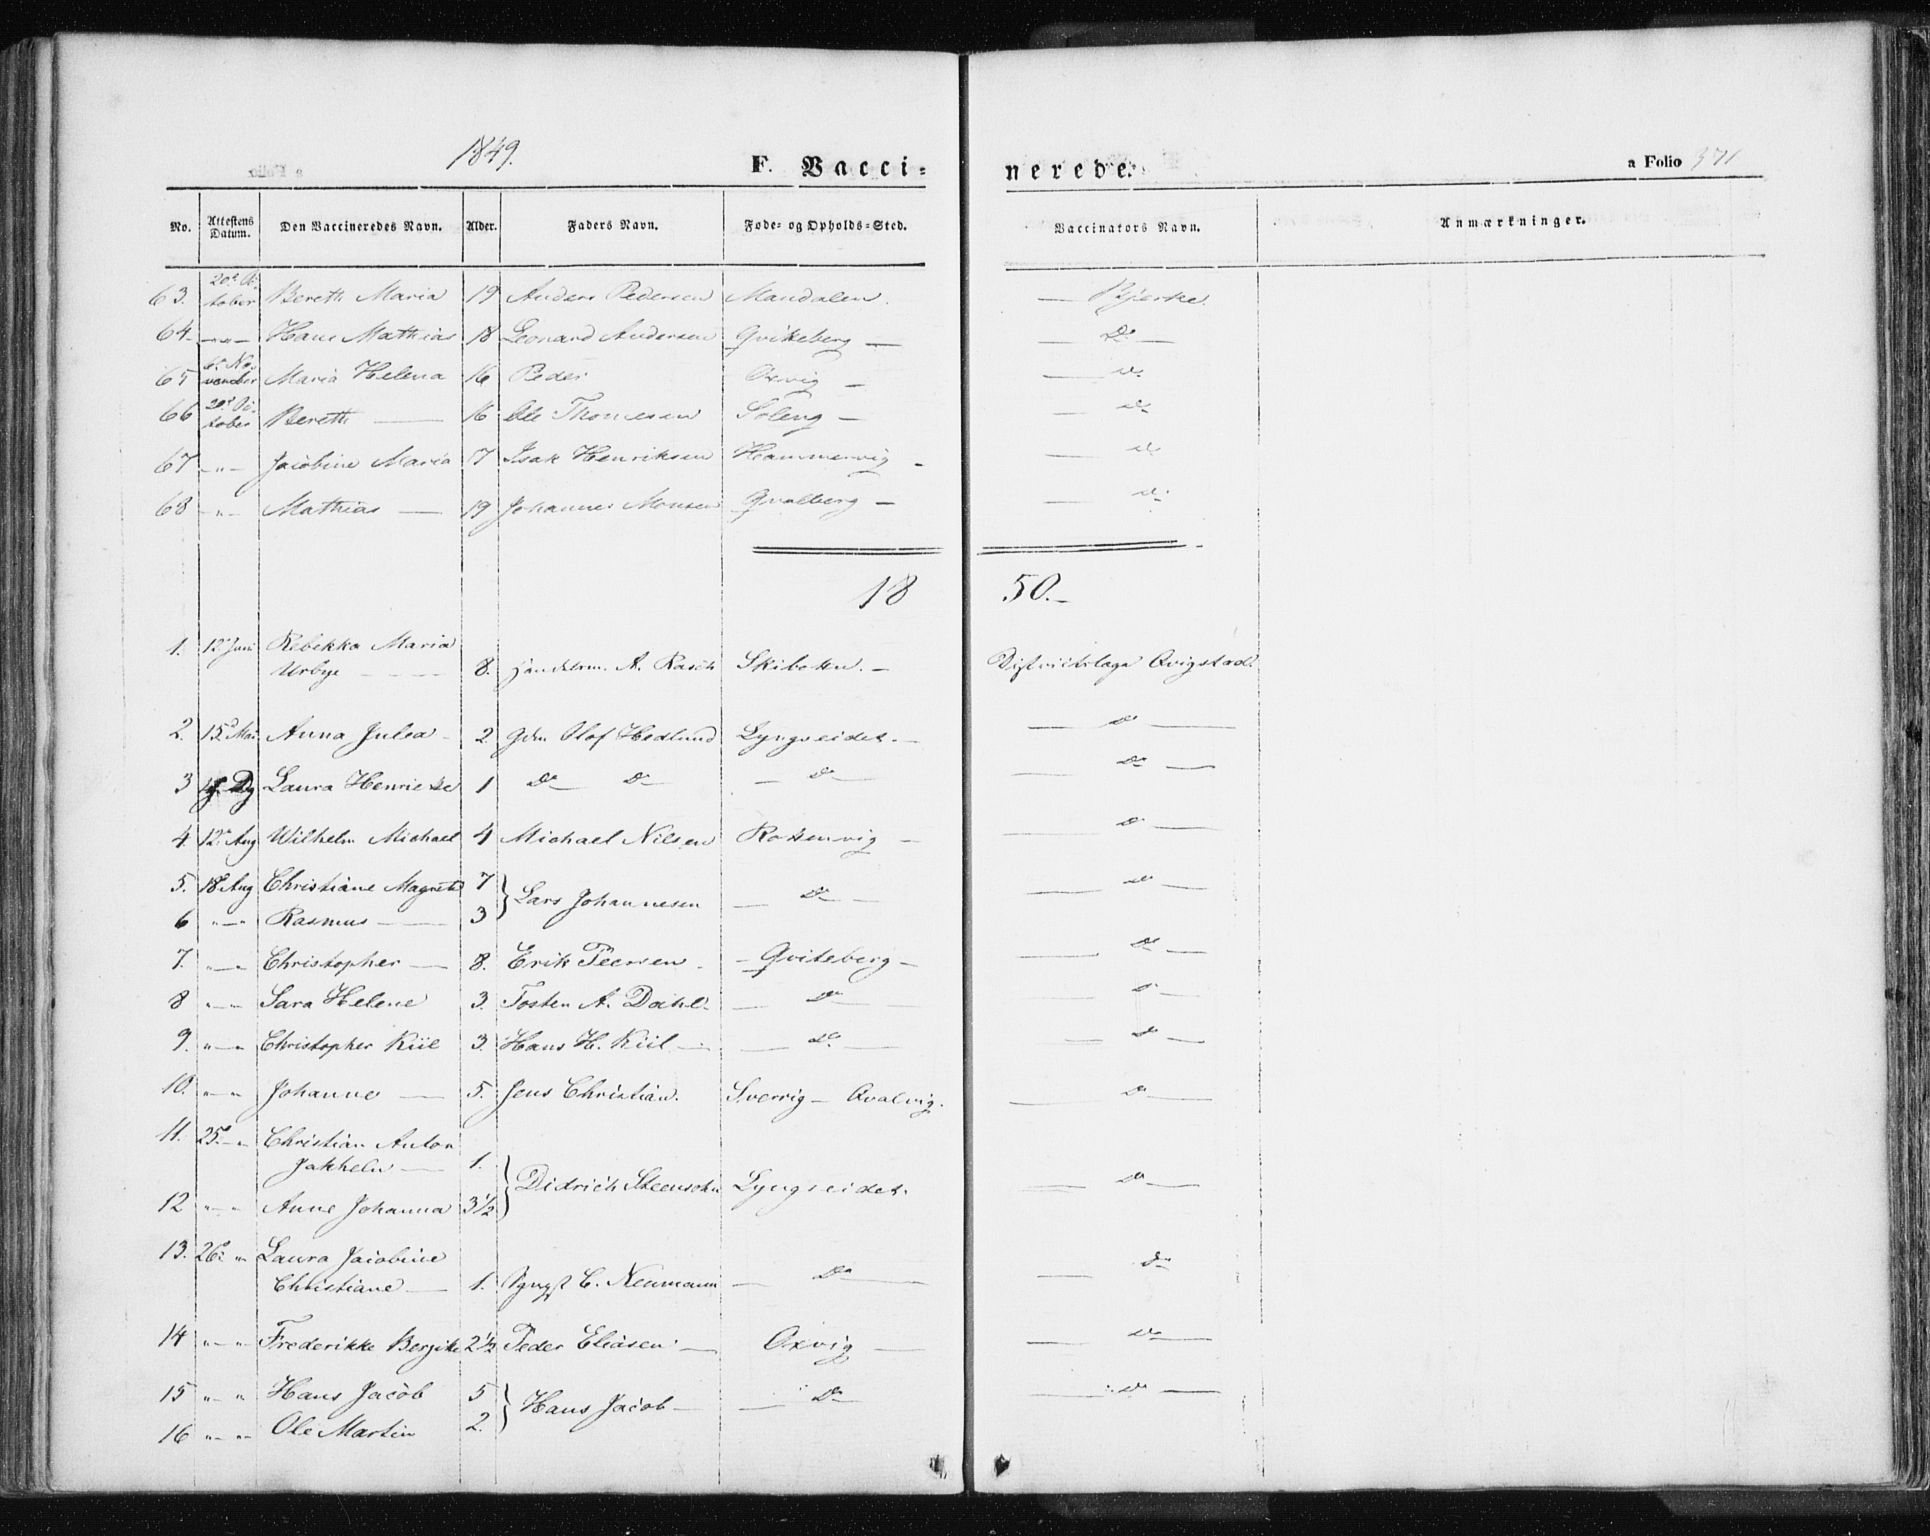 1849.
F. Vacci-
nerede.
a Folio 371
No. Attestens Datum. Den Vaccineredes Navn. Alder. Faders Navn. Føde- og Opholds-Sted. Vaccinators Navn. Anmærkninger.
63. 20de October Bereth Maria 19 Anders Pedersen Mandalen. — Bjerke.
64. — " — Hans Mathias 18 Leonard Andersen Qviteberg — — Do —
65 6te November Maria Helena 16 Peder Oxvig — — do
66 20de October Bereth — 16 Ole Thomesen Soleng — — do
67 — " — Jacobine Maria 17 Isak Henriksen Hammervig — — do
68 — " — Mathias — 19 Johannes Monsen Qvalberg — — do
18 50. —
1. 12te Juni Rebekka Maria
Urbye — 8. Handelsm. A. Rasch Skibotten. — Districtslæge Qvigstad.
2. 15de Mai Anna Julia — 2 Olof Hedlund Lyngseidet. — — do —
3 Laura Henriette 1 Do Do — Do — — Do —
4. 12te Aug Wilhelm Michael 4 Michael Nilsen Rottenvig — — do —
5. 18de Aug Christiane Magrete 7 } Lars Johannesen — Do — — do —
6 " — " Rasmus — 3
7. " — " Christopher — 8. Erik Peersen — Qviteberg — — do —
8 " — " Sara Helene 3. Tosten A. Dahl. — Do — — do —
9. " — " Christopher Kiil 3. Hans H. Kiil — — Do — — do —
10. " — " Johanne — 5. Jens Christian. Sverrig — Qvalvig. — do —
11. 25de — " Christian Anton
Jakheln — 1. } Didrich Steensohn Lyngseidet. — do —
12 " — " Anne Johanna 3½
13. 26de " Laura Jacobine
Christiane — 1. C. Neumann — Do — — do
14 " — " Frederikke Bergite 2½ Peder Eliasen — Oxvig — — do —
15 " — " Hans Jacob 5 } Hans Jacob — — Do — do —
16 " — " Ole Martin 2.